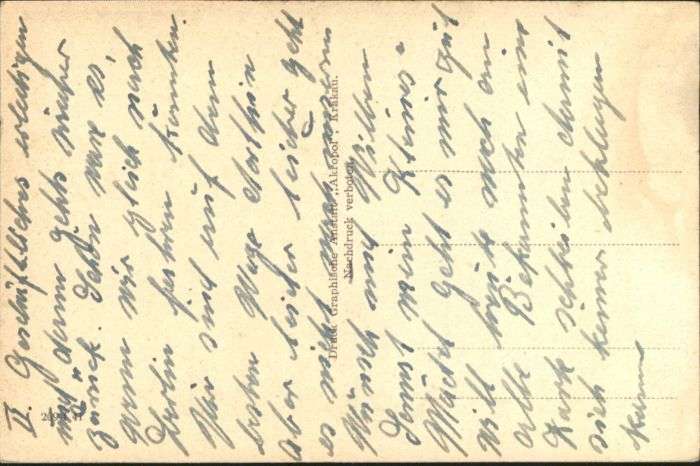 II. Geschäftliches erledigen
und dann gehts wieder
zurück. Schön wäre es,
wenn wir gleich nach
Berlin fahren könnten.
Wir sind auf dem
besten Wege dorthin
aber leider leider geht
es nicht nach unserm
Wunsch und Willen
Sonst mein Kleines
Mädel geht es mir gut
Will heute noch an
alle Bekannten eine
Karte schreiben damit
sich keiner beklagen
kann
Druck Graphische Anstalt „Akropol", Krakau.
Nachdruck verboten.